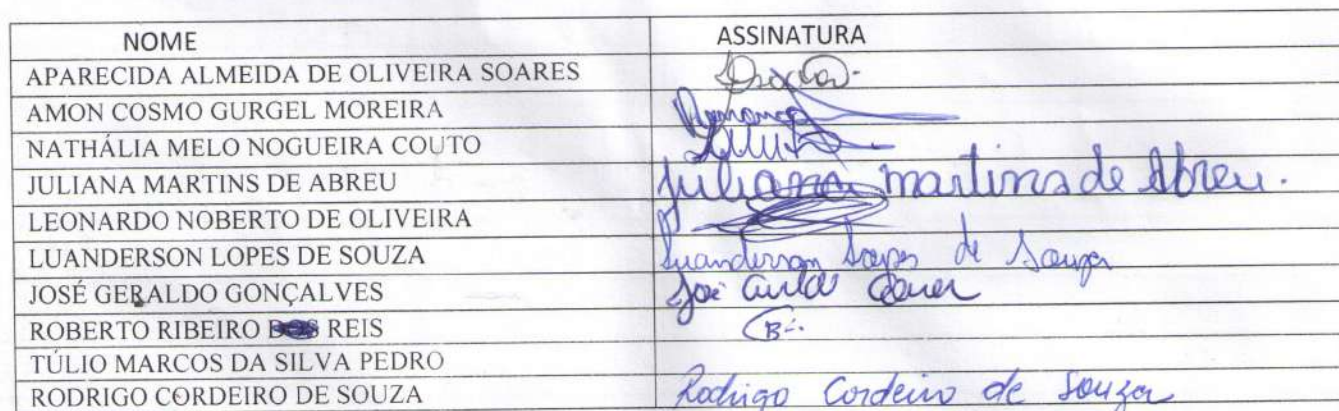 NOME ASSINATURA
APARECIDA ALMEIDA DE OLIVEIRA SOARES
AMON COSMO GURGEL MOREIRA
NATHÁLIA MELO NOGUEIRA COUTO
JULIANA MARTINS DE ABREU Juliana martins de Abreu.
LEONARDO NOBERTO DE OLIVEIRA
LUANDERSON LOPES DE SOUZA Luanderson Lopes de Souza
JOSÉ GERALDO GONÇALVES José
ROBERTO RIBEIRO REIS
TÚLIO MARCOS DA SILVA PEDRO
RODRIGO CORDEIRO DE SOUZA Rodrigo Cordeiro de Souza